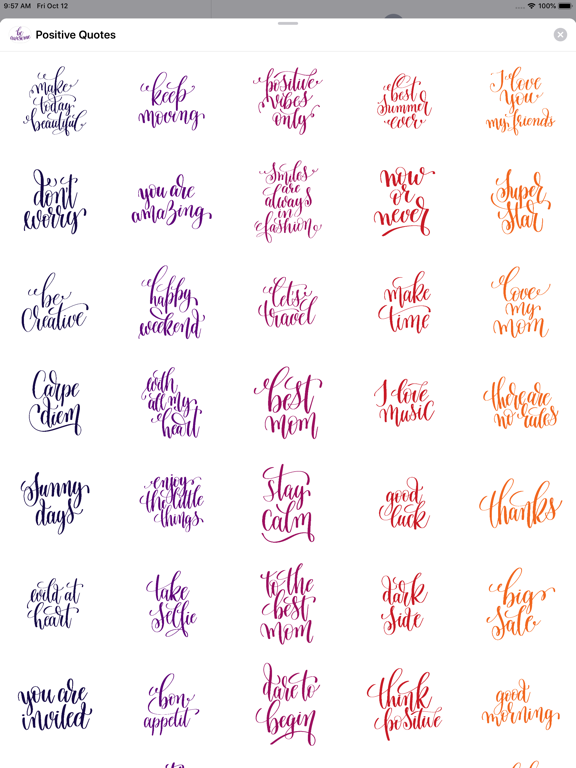 9:57 AM Fri Oct 12
100%
be
awesome
Positive Quotes
make
today
beautiful
keep
moving
positive
vibes
only
best
summer
ever
I love
you
my friends
don't
worry
you are
amazing
smiles
are
always
in
fashion
now
or
never
super
star
be
creative
happy
weekend
let's
travel
make
time
love
my
mom
Carpe
diem
with
all my
heart
best
mom
I love
music
there are
no rules
sunny
days
enjoy
the little
things
stay
calm
good
luck
thanks
wild at
heart
take
selfie
to the
best
mom
dark
side
big
sale
you are
invited
bon
appetit
dare to
begin
think
positive
good
morning